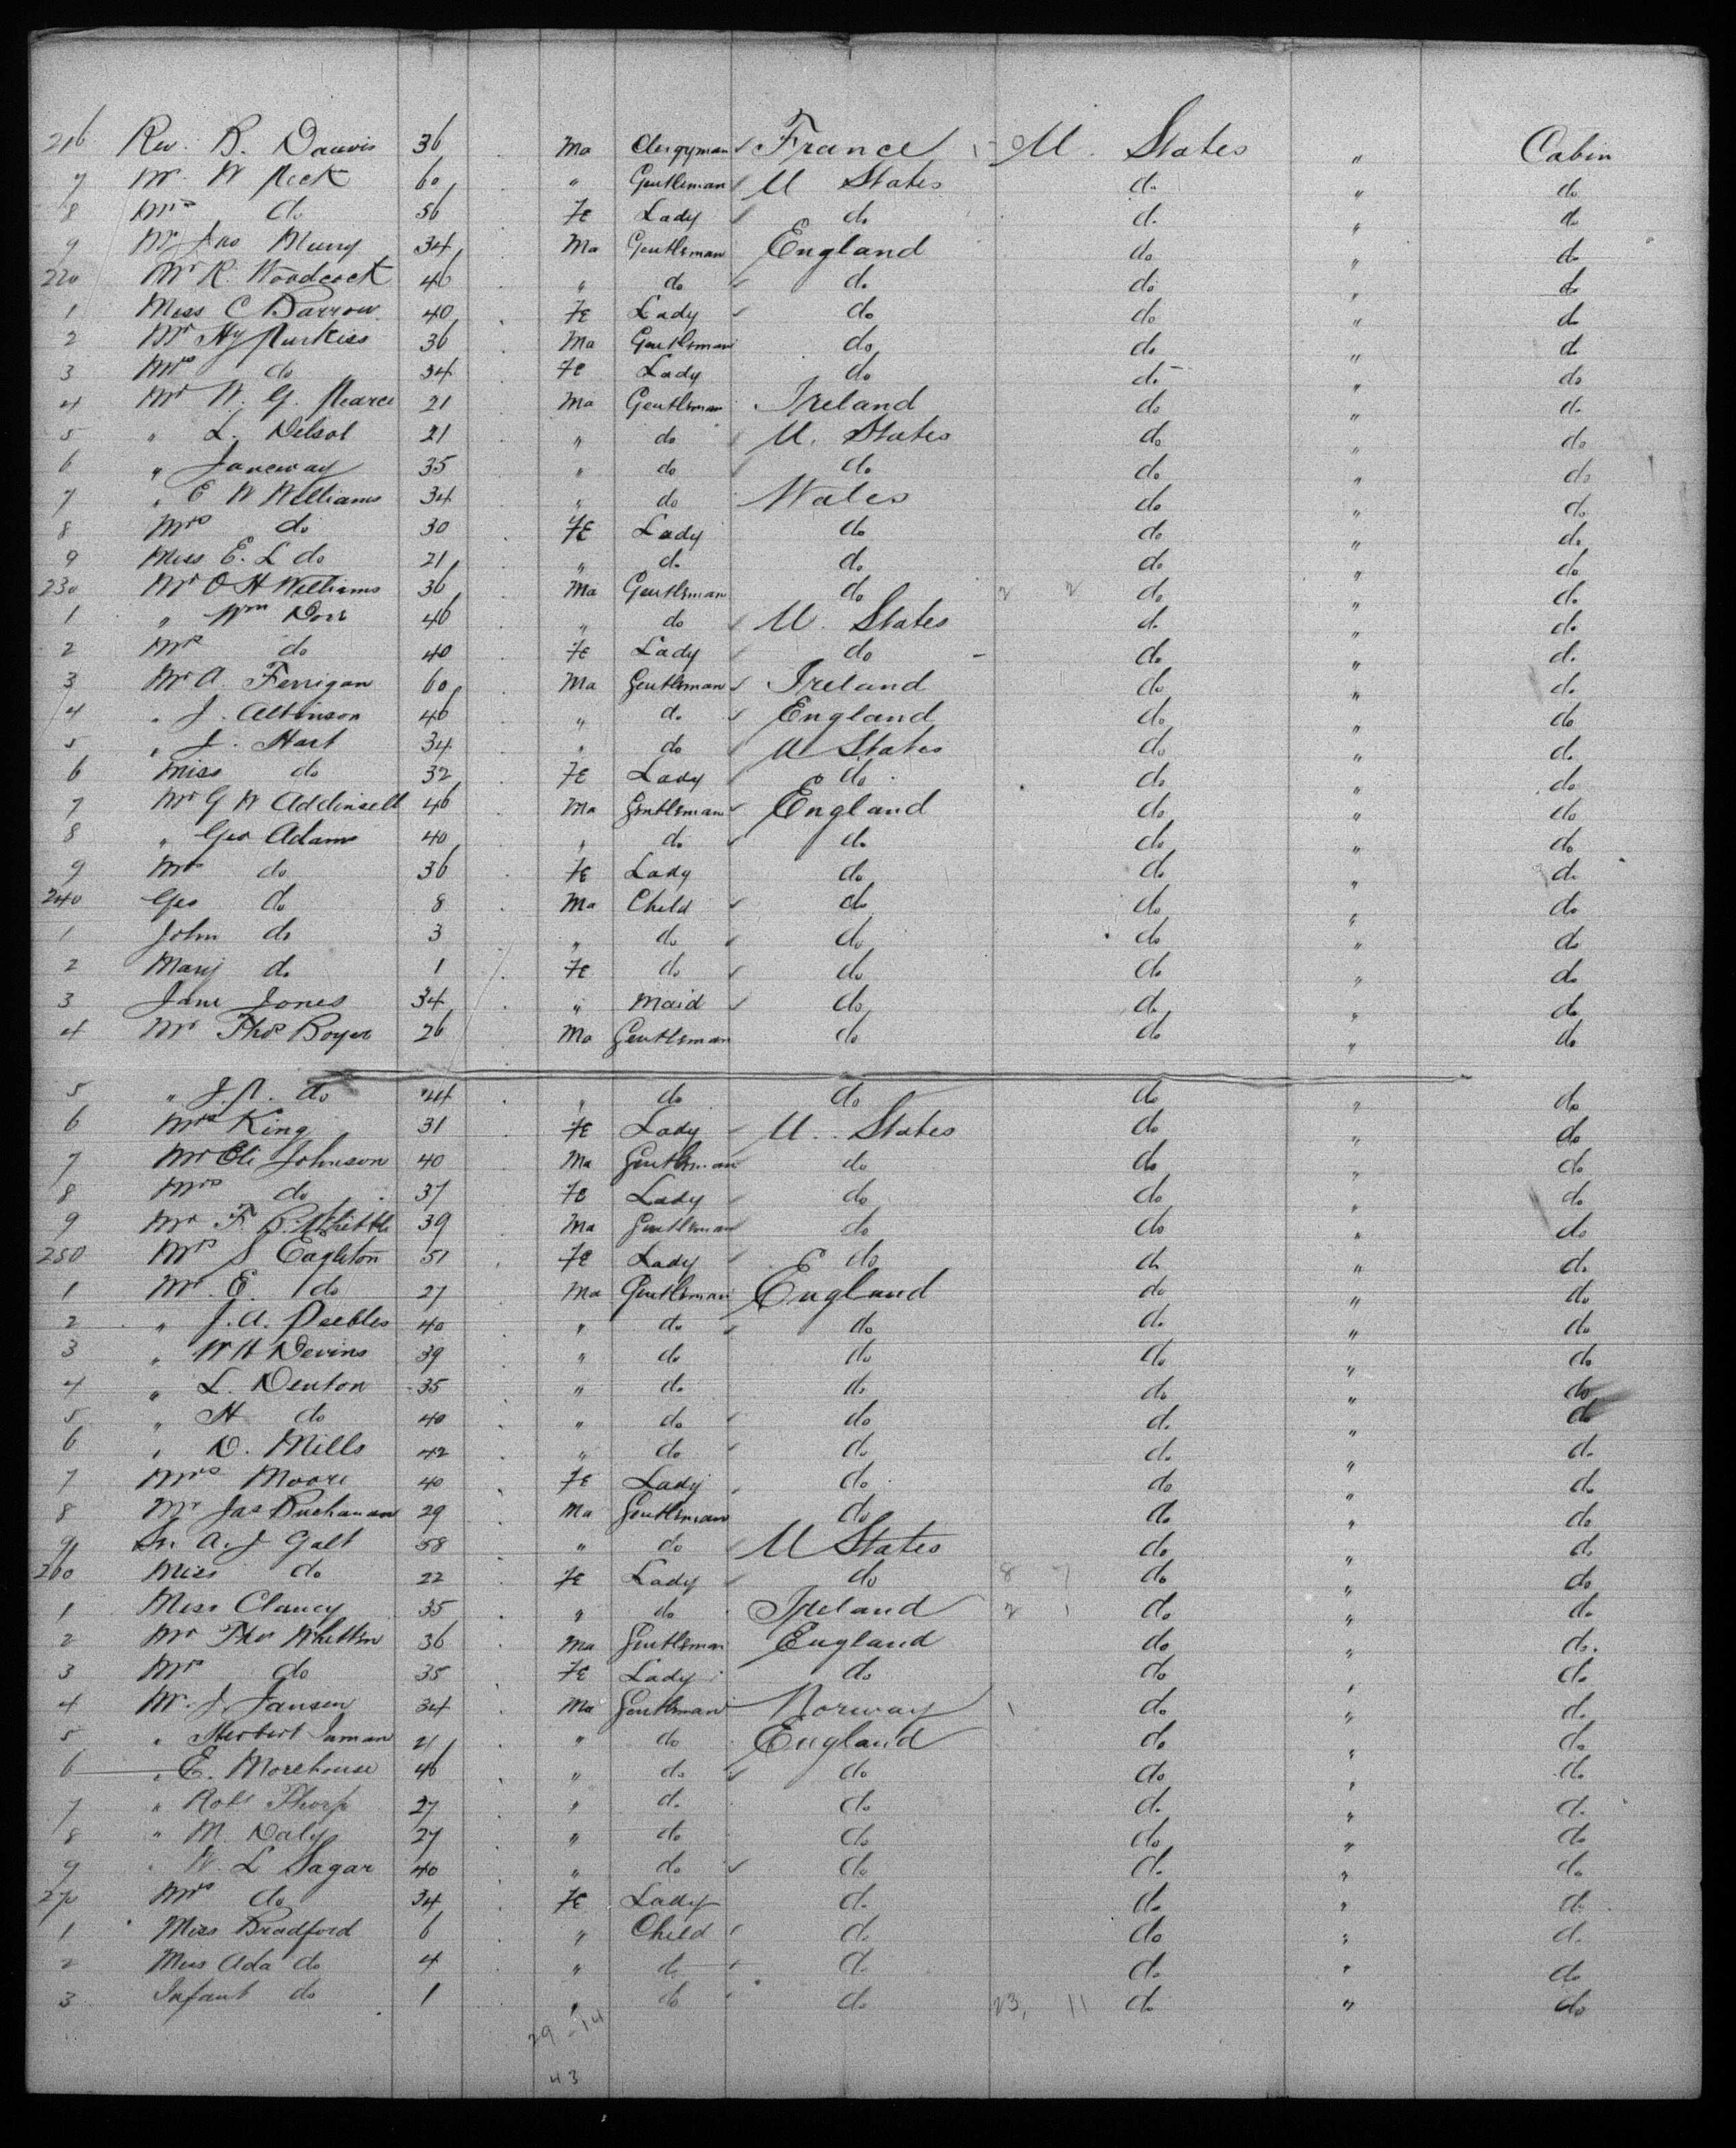 216 Rev. B. Dauvis 36 Ma Clergyman France U. States " Cabin
7 Mr. W Peck 60 " Gentleman U States do " do
8 Mrs do 56 Fe Lady do do " do
9 Mr Jas 34 Ma Gentleman England do " do
220 Mr R. Woodcock 46 " do do do " do
1 Miss C Barrow 40 Fe Lady do do " do
2 Mr Hy Purkiss 36 Ma Gentleman do do " do
3 Mrs do 34 Fe Lady do do " do
4 Mr W. G. Pearce 21 Ma Gentleman Ireland do " do
5 " L. Delsol 21 " do U. States do " do
6 " Janeway 35 " do do do " do
7 " E W Williams 34 " do Wales do " do
8 Mrs do 30 Fe Lady do do " do
9 Miss E. L do 21 " do do do " do
230 Mr O H Williams 36 Ma Gentleman do 2 2 do " do
1 " Wm Dorr 46 " do U. States do " do
2 Mrs do 40 Fe Lady do do " do
3 Mr A. Ferrigan 60 Ma Gentleman Ireland do " do
4 " J. Atkinson 46 " do England do " do
5 " J. Hart 34 " do U States do " do
6 Miss do 32 Fe Lady do do " do
7 Mr G W Addinsell 46 Ma Gentleman England do " do
8 " Geo Adams 40 " do do do " do
9 Mrs do 36 Fe Lady do do " do
240 Geo do 8 Ma Child do do " do
1 John do 3 " do do do " do
2 Mary do 1 Fe do do do " do
3 Jane Jones 34 " Maid do do " do
4 Mr Thos Boyer 26 Ma Gentleman do do " do
5 " do 24 " do do do " do
6 Mrs King 31 Fe Lady U. States do " do
7 Mr Eli Johnson 40 Ma Gentleman do do " do
8 Mrs do 37 Fe Lady do do " do
9 Mr F. B. Whittle 39 Ma Gentleman do do " do
250 Mrs S Eagleton 51 Fe Lady do do " do
1 Mr. E. do 27 Ma Gentleman England do " do
2 " J. A. Peebles 40 " do do do " do
3 " W H Devins 39 " do do do " do
4 " L. Denton 35 " do do do " do
5 " H do 40 " do do do " do
6 " D. Mills 42 " do do do " do
7 Mrs Moore 40 Fe Lady do do " do
8 Mr Jas Buchanan 29 Ma Gentleman do do " do
9 Sir A. J Galt 58 " do U States do " do
260 Miss do 22 Fe Lady do 8 7 do " do
1 Miss Clancy 35 " do Ireland 2 1 do " do
2 Mr Thos Whitten 36 Ma Gentleman England do " do
3 Mrs do 35 Fe Lady do do " do
4 Mr. J. Jansen 34 Ma Gentleman Norway 1 do " do
5 " Herbert Inman 21 " do England do " do
6 " E. Morehouse 46 " do do do " do
7 " Robt Thorp 27 " do do do " do
8 " M. Daly 27 " do do do " do
9 " W. L Sagar 40 " do do do " do
270 Mrs do 34 Fe Lady do do " do
1 Miss Bradford 6 " Child do do " do
2 Miss Ada do 4 " do do do " do
3 Infant do 1 " do do 23, 11 do " do
29 - 14
43